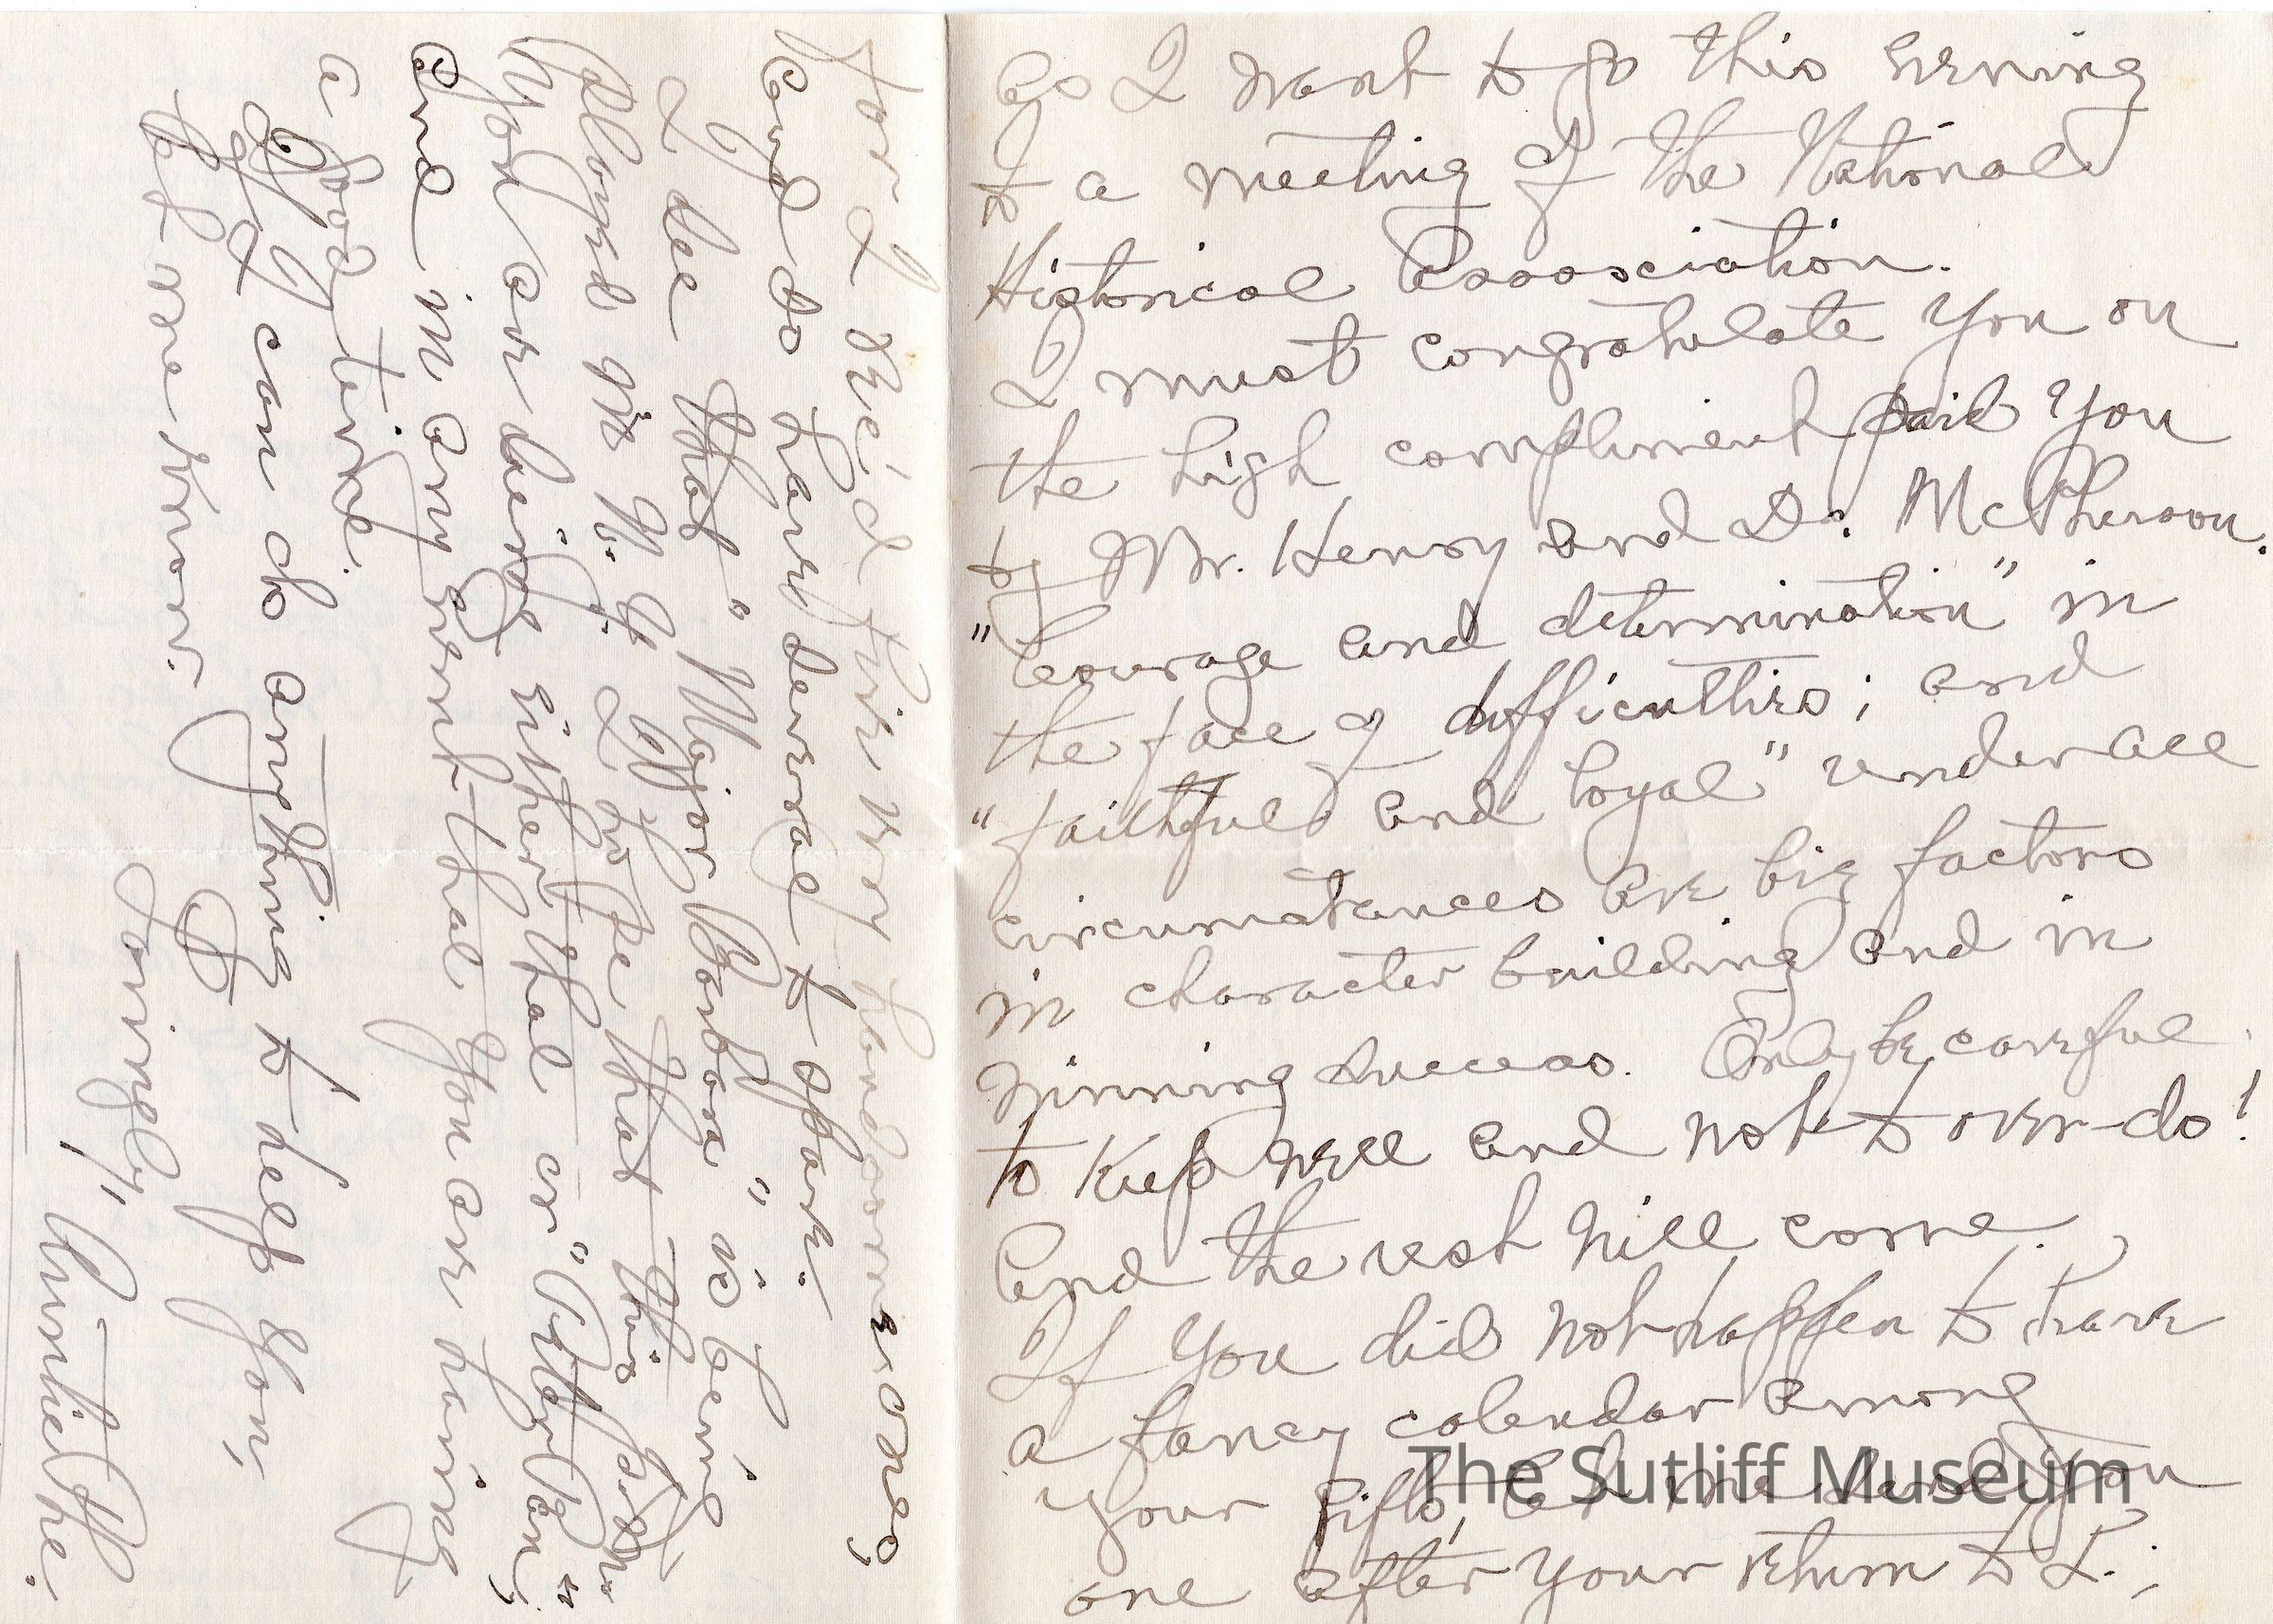 As I want to go this evening
to a meeting of the National
Historical Association.
I must congratulate you on
the high compliment paid you
by Mr. Henry and Dr. McPherson.
"Courage and determination" in
the face of difficulties; and
"faithful and loyal" under all
circumstances are big factors
in character building and in
winning success. Only be careful
to keep well and not to over-do!
And the rest will come.
If you did not happen to have
a fancy calendar among
your gifts, let me send you
one after your return to L.;
for I rec'd five very handsome ones,
and so have several to spare.
I see that "Major Barbara" is being
played in N. Y. I hope that this finds
you are being either that or "Peter Pan";
and in any event that you are having
a good time.
If I can do anything to help you,
let me know.
Lovingly, Auntie Phe.
The Sutliff Museum